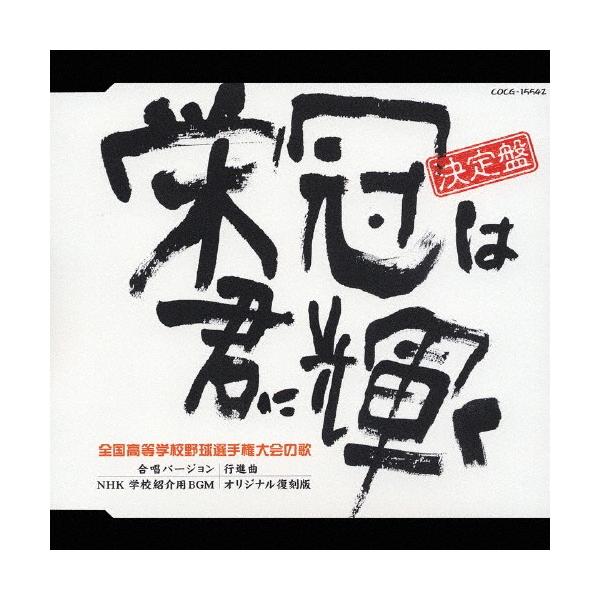 COCG-15542
決定盤
栄冠は
君に輝く
全国高等学校野球選手権大会の歌
合唱バージョン 行進曲
NHK 学校紹介用BGM オリジナル復刻版